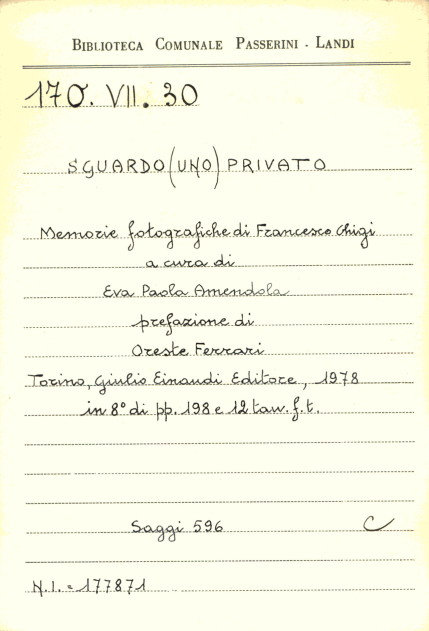 BIBLIOTECA COMUNALE PASSERINI - LANDI
170. VII. 30
SGUARDO (UNO) PRIVATO
Memorie fotografiche di Francesco Chigi
a cura di
Eva Paola Amendola
prefazione di
Oreste Ferrari
Torino, Giulio Einaudi Editore, 1978
in 8° di pp. 198 e 12 tav. f. t.
Saggi 596 C
N.I. = 177871